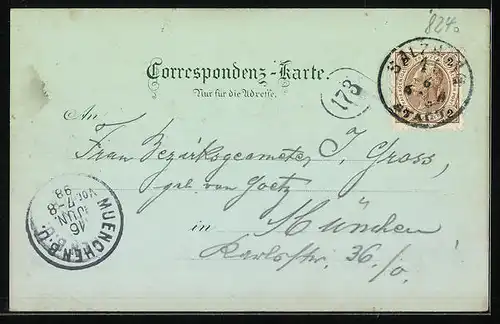 824.
SALZBURG
STADT
173
Correspondenz-Karte.
Nur für die Adresse.
An
Frau Bezirksgeometer J. Gross,
geb. von Goetz
in München
Karlstr. 36./0.
MUENCHEN B.O.
16
JUN.
Vor. 7-8
98